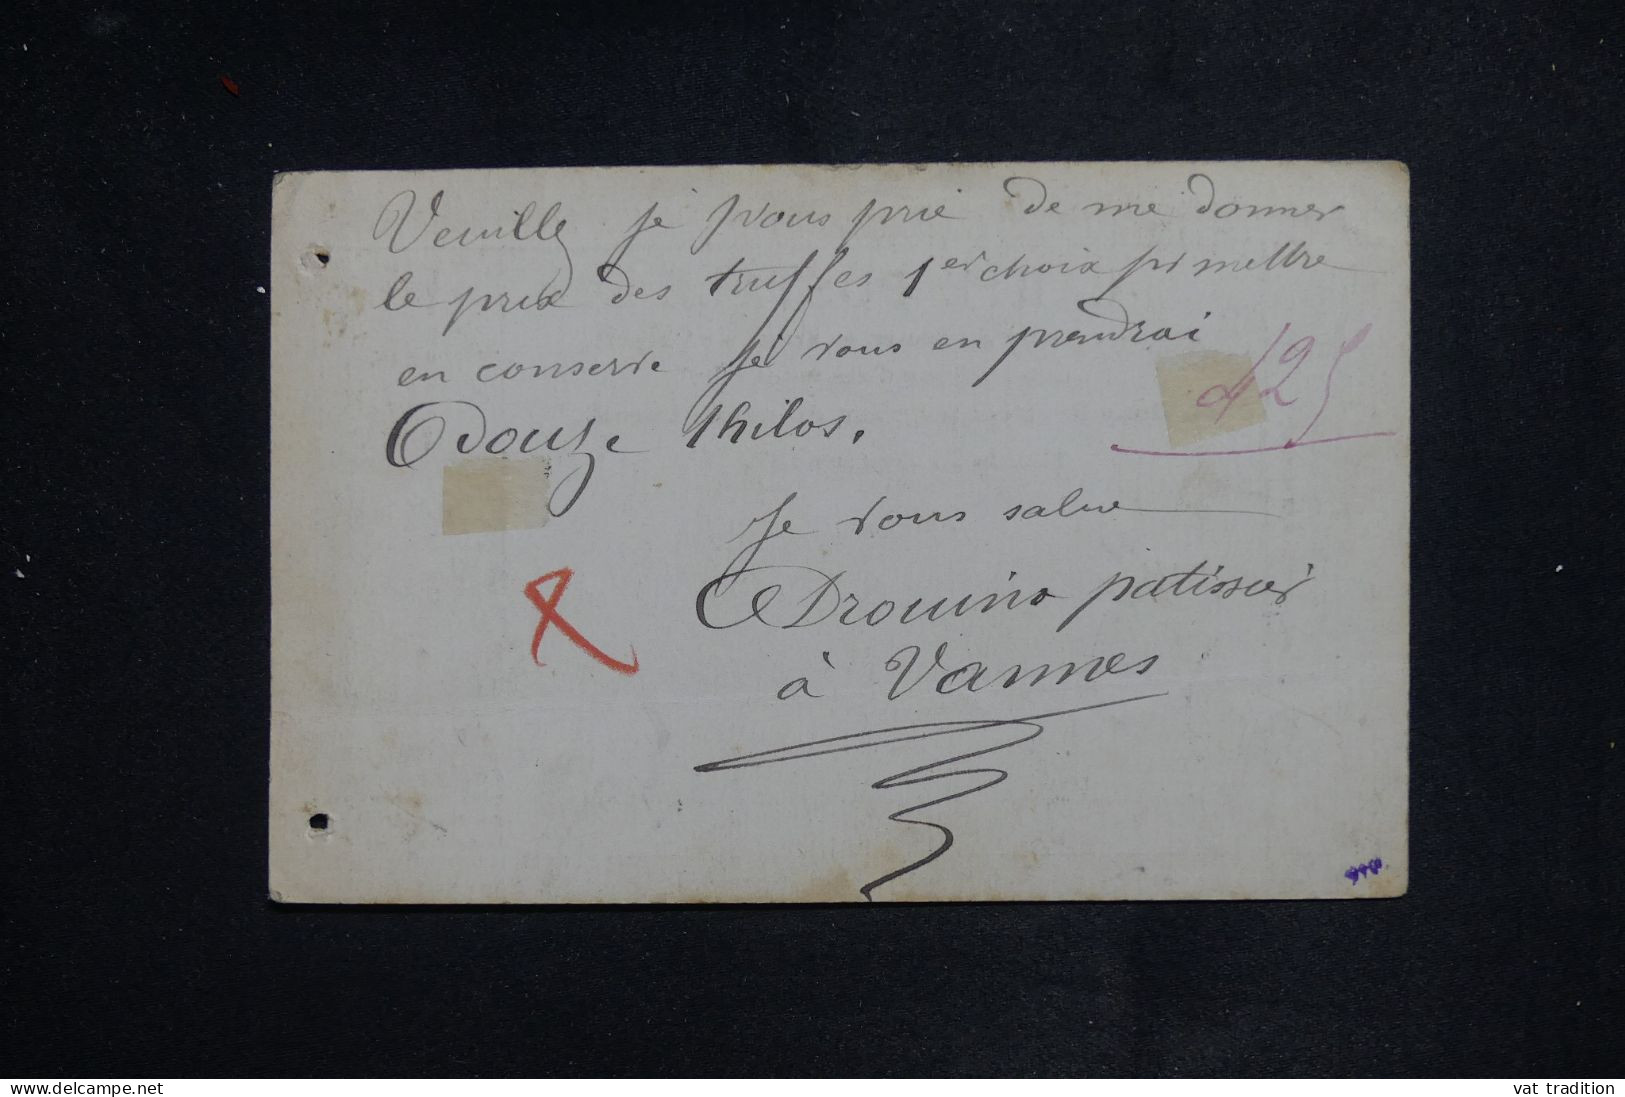 Veuillez je vous prie de me donner
le prix des truffes 1er choix pr mettre
en conserve je vous en prendrai
douze kilos.
425
Je vous salue
Drouin patissier
à Vannes
www.delcampe.net
vat tradition